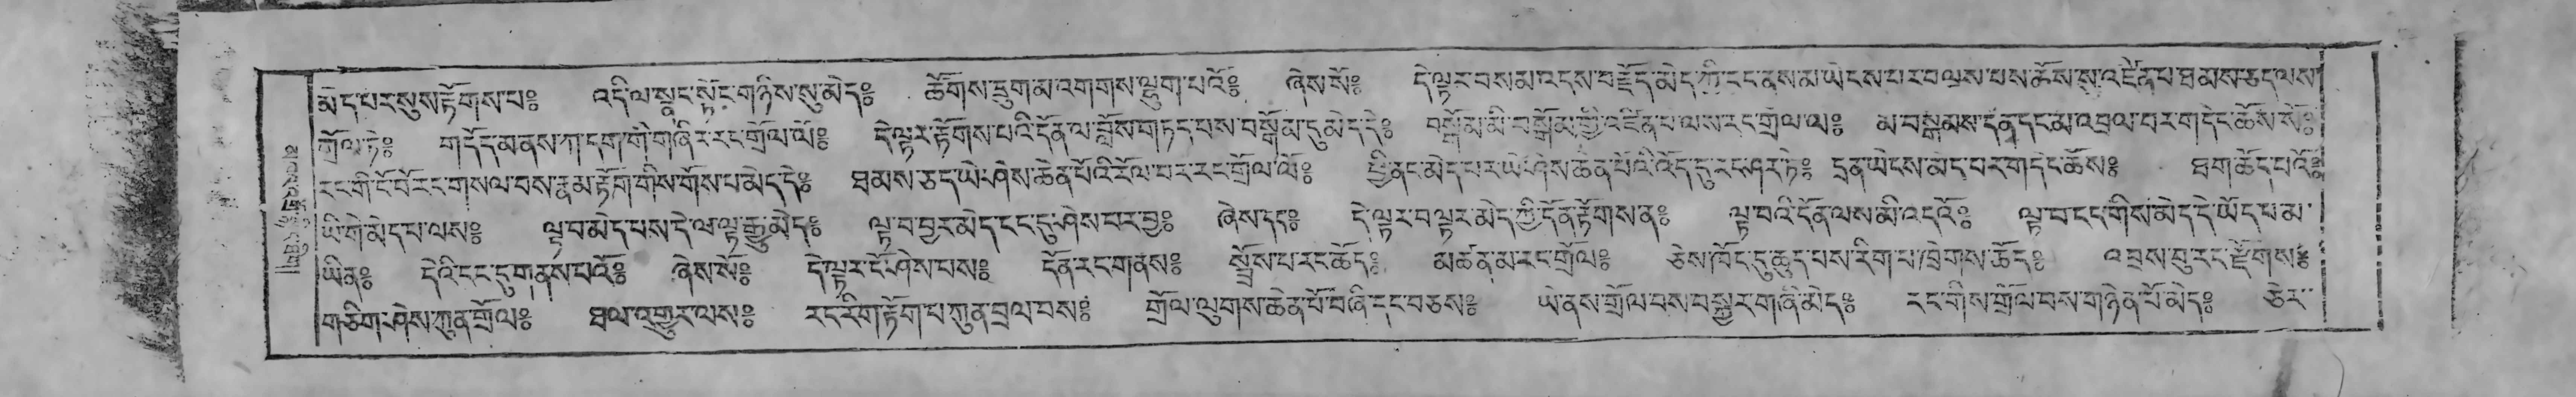 མེད་པར་སུས་རྟོགས་པ༔ འདི་ལ་སྣང་སྟོང་གཉིས་སུ་མེད༔ ཚོགས་དྲུག་མ་འགགས་ལྷུག་པའོ༔ ཞེས་སོ༔ དེ་ལྟར་བསམ་འདས་བརྗོད་མེད་ཀྱི་ངང་ནས་མ་ཡེངས་པར་བལྟས་པས་ཆོས་སུ་འཛིན་པ་ཐམས་ཅད་ལས་
གྲོལ་ཏེ༔ གདོད་མ་ནས་ཀ་དག་གི་གཞི་ར་རང་གྲོལ་ལོ༔ དེ་ལྟར་རྟོགས་པའི་དོན་ལ་བློས་གཏད་པས་བསྒོམ་དུ་མེད་དེ༔ བསྒོམ་མི་བསྒོམ་གྱི་འཛིན་པ་ལས་རང་གྲོལ་ལ༔ མ་བསྒོམས་དོན་དང་མ་འབྲལ་བར་གདེང་ཆོས་སོ༔
རང་གི་ངོ་བོ་རང་གསལ་བས་རྣམ་རྟོག་གིས་གོས་པ་མེད་དེ༔ ཐམས་ཅད་ཡེ་ཤེས་ཆེན་པོའི་རོལ་པར་རང་གྲོལ་ལོ༔ ཕྱི་ནང་མེད་པར་ཡེ་ཤེས་ཆེན་པོའི་འོད་དུ་རང་ཤར་ཏེ༔ དྲན་ཡེངས་མེད་པར་གདེང་ཆོས༔ ཐག་ཆོད་པའོ༔
ཡི་གེ་མེད་པ་ལས༔ ལྟ་བ་མེད་པས་དེ་ལ་ལྟ་རྒྱུ་མེད༔ ལྟ་བ་བྱར་མེད་ངང་དུ་ཤེས་པར་བྱ༔ ཞེས་དང༔ དེ་ལྟར་བལྟར་མེད་ཀྱི་དོན་རྟོགས་ན༔ ལྟ་བའི་དོན་ལས་མི་འདའོ༔ ལྟ་བ་ངང་གིས་མེད་དེ་ཡོད་པ་མ་
ཡིན༔ དེའི་ངང་དུ་གནས་པའོ༔ ཞེས་སོ༔ དེ་ལྟར་ངོ་ཤེས་པས༔ དོན་རང་གནས༔ སྤྲོས་པ་རང་ཆོད༔ མཚན་མ་རང་གྲོལ༔ ཅེས་ཁོང་དུ་ཆུད་པས་རིག་པ་ཁྲེགས་ཆོད༔ འབྲས་བུ་རང་རྫོགས༔
གཅིག་ཤེས་ཀུན་གྲོལ༔ ཐལ་འགྱུར་ལས༔ རང་རིག་རྟོག་པ་ཀུན་བྲལ་བས༔ གྲོལ་ལུགས་ཆེན་པོ་བཞི་དང་བཅས༔ ཡེ་ནས་གྲོལ་བས་བསྐྱར་གཞི་མེད༔ རང་གིས་གྲོལ་བས་གཉེན་པོ་མེད༔ ཅེར་